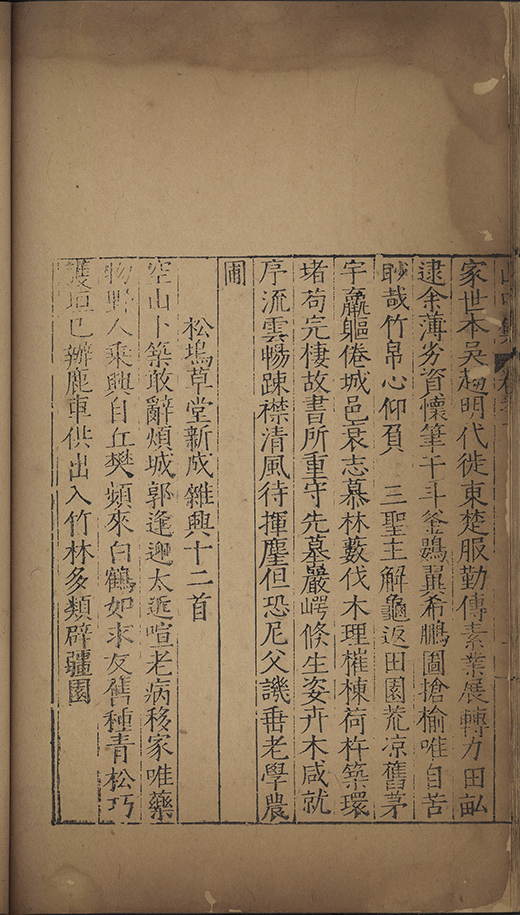 家世本吳趨明代徙東楚服勤傳素業展轉力田畝
逮余薄劣資懷筆干斗釜鷃翼希鵬圖搶榆唯自苦
眇哉竹帛心仰負 三聖主解龜返田園荒凉舊茅
宇羸軀倦城邑衰志慕林藪伐木理榱棟荷杵築環
堵苟完棲故書所重守先墓嚴崿倏生姿卉木咸就
序流雲暢踈襟清風待揮麈但恐尼父譏垂老學農
圃
松塢草堂新成雜興十二首
空山卜築敢辭煩城郭逢迎太逛喧老病移家唯藥
物野人乘興自丘樊頻來白鶴如求友舊種青松巧
護垣已辦鹿車供出入竹林多類辟疆園